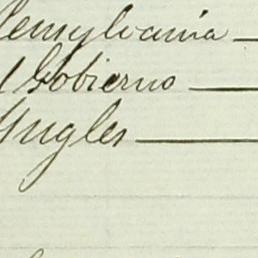 Pensylvania
l Gobierno
Yngles